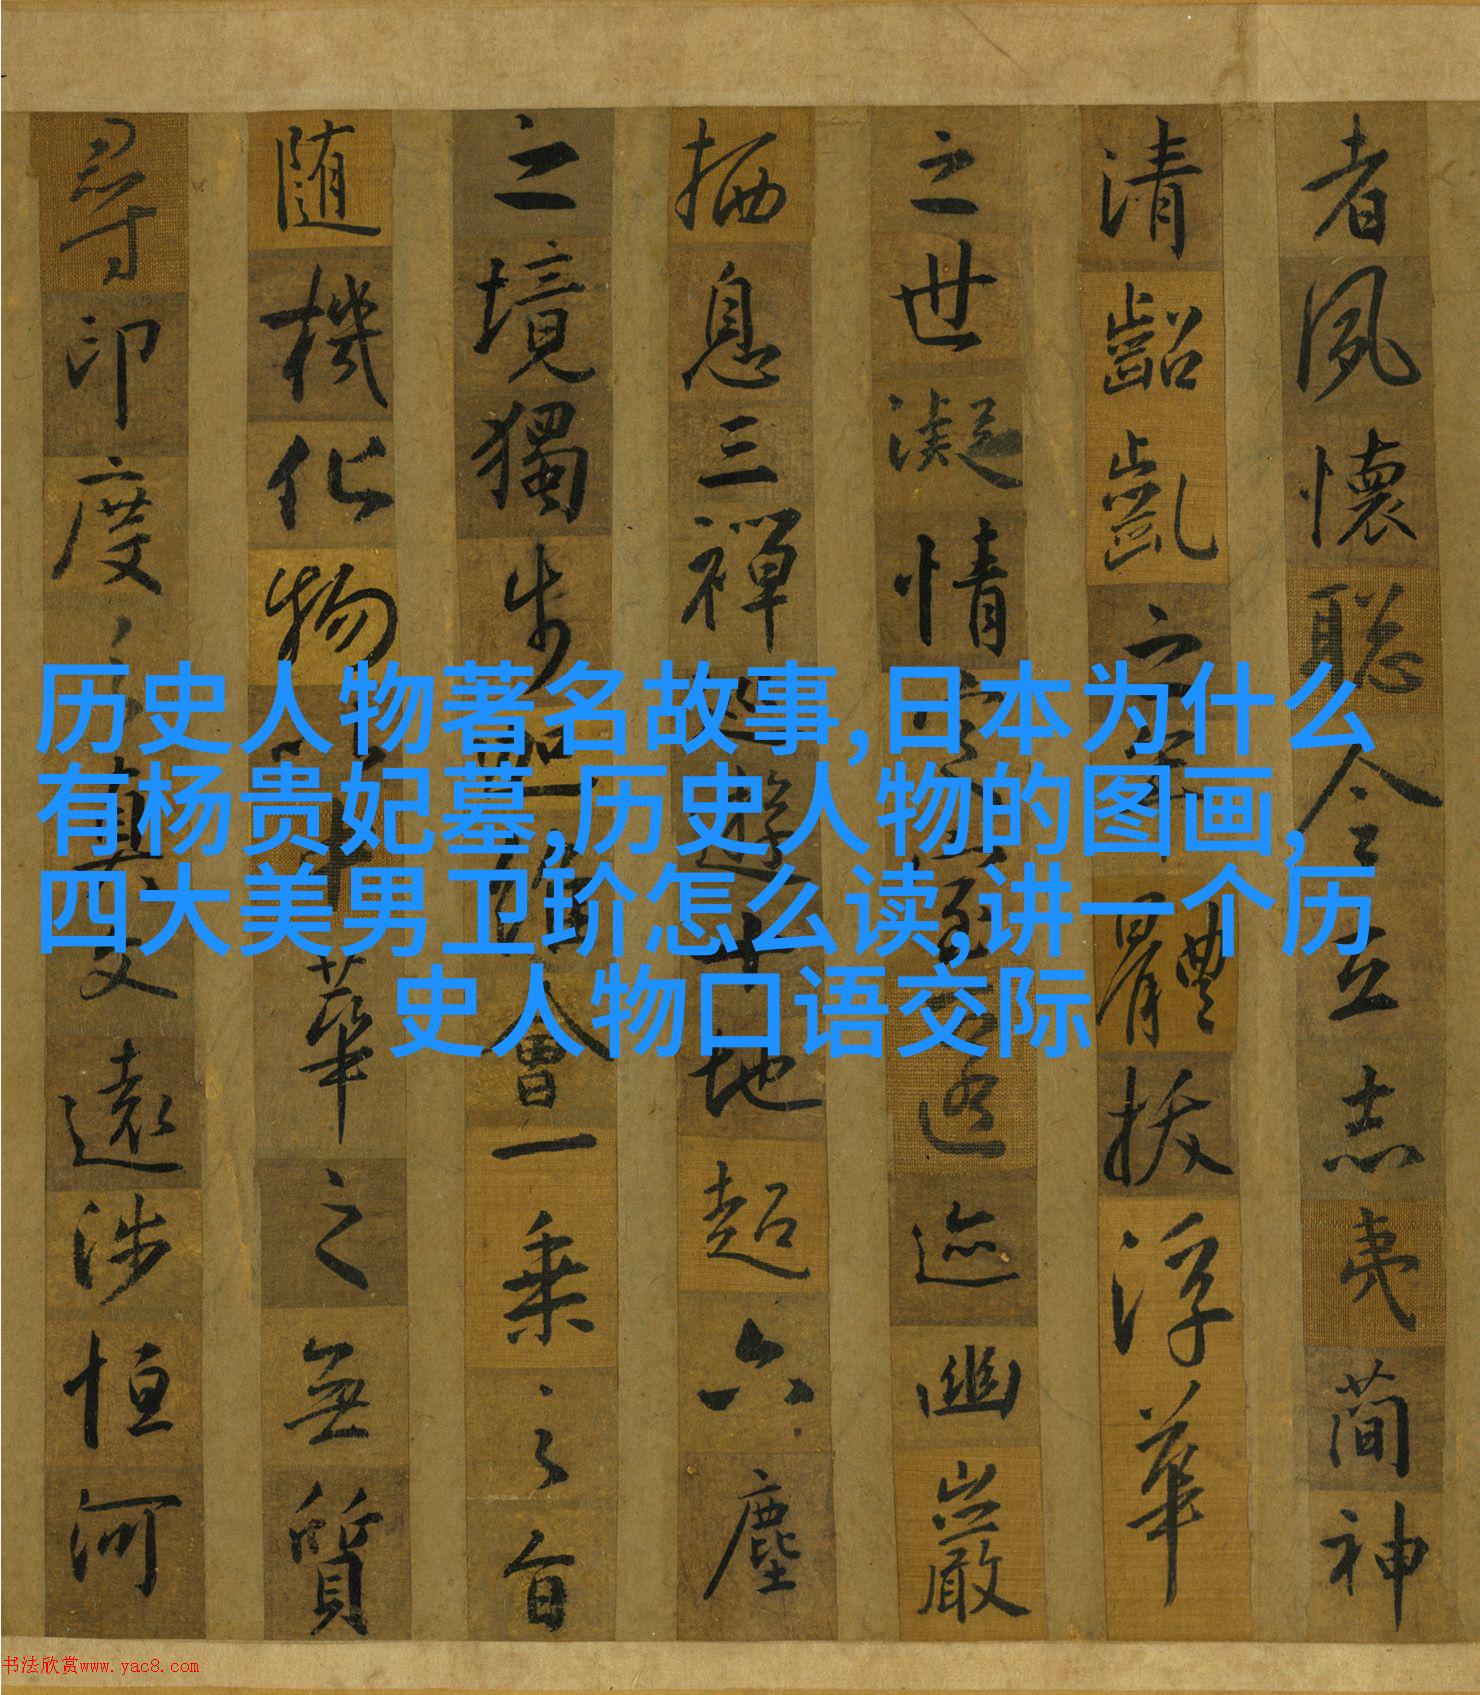 者夙懷聪令立志夷簡神
清齠齓之年體拔浮華
之世凝情定室匿迹幽巖
栖息三禪巡遊十地超六塵
之境獨步迦維會一乗之旨
随機化物以中華之無質
尋印度之真文遠涉恒河
历史人物著名故事,日本为什么
有杨贵妃墓,历史人物的图画,
四大美男卫玠怎么读,讲一个历
史人物口语交际
书法欣赏www.yac8.com